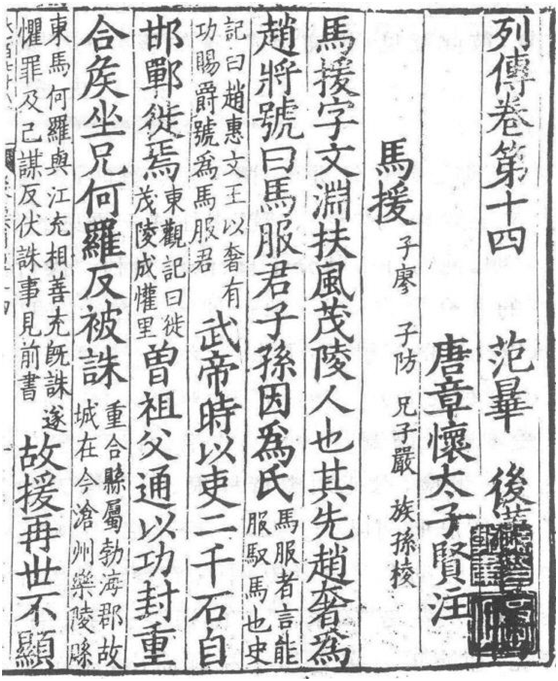 列傳卷第十四 范曄 後
唐章懷太子賢注
馬援 子廖 子防 兄子嚴 族孫棱
馬援字文淵扶風茂陵人也其先趙奢爲
趙將號曰馬服君子孫因爲氏
馬服者言能
服馭馬也史
記曰趙惠文王以奢有
功賜爵號爲馬服君
武帝時以吏二千石自
邯鄲徙焉
東觀記曰徙
茂陵成懽里
曾祖父通以功封重
合矦坐兄何羅反被誅
重合縣屬勃海郡故
城在今滄州樂陵縣
東馬何羅與江充相善充旣誅遂
懼罪及己謀反伏誅事見前書
故援再世不顯